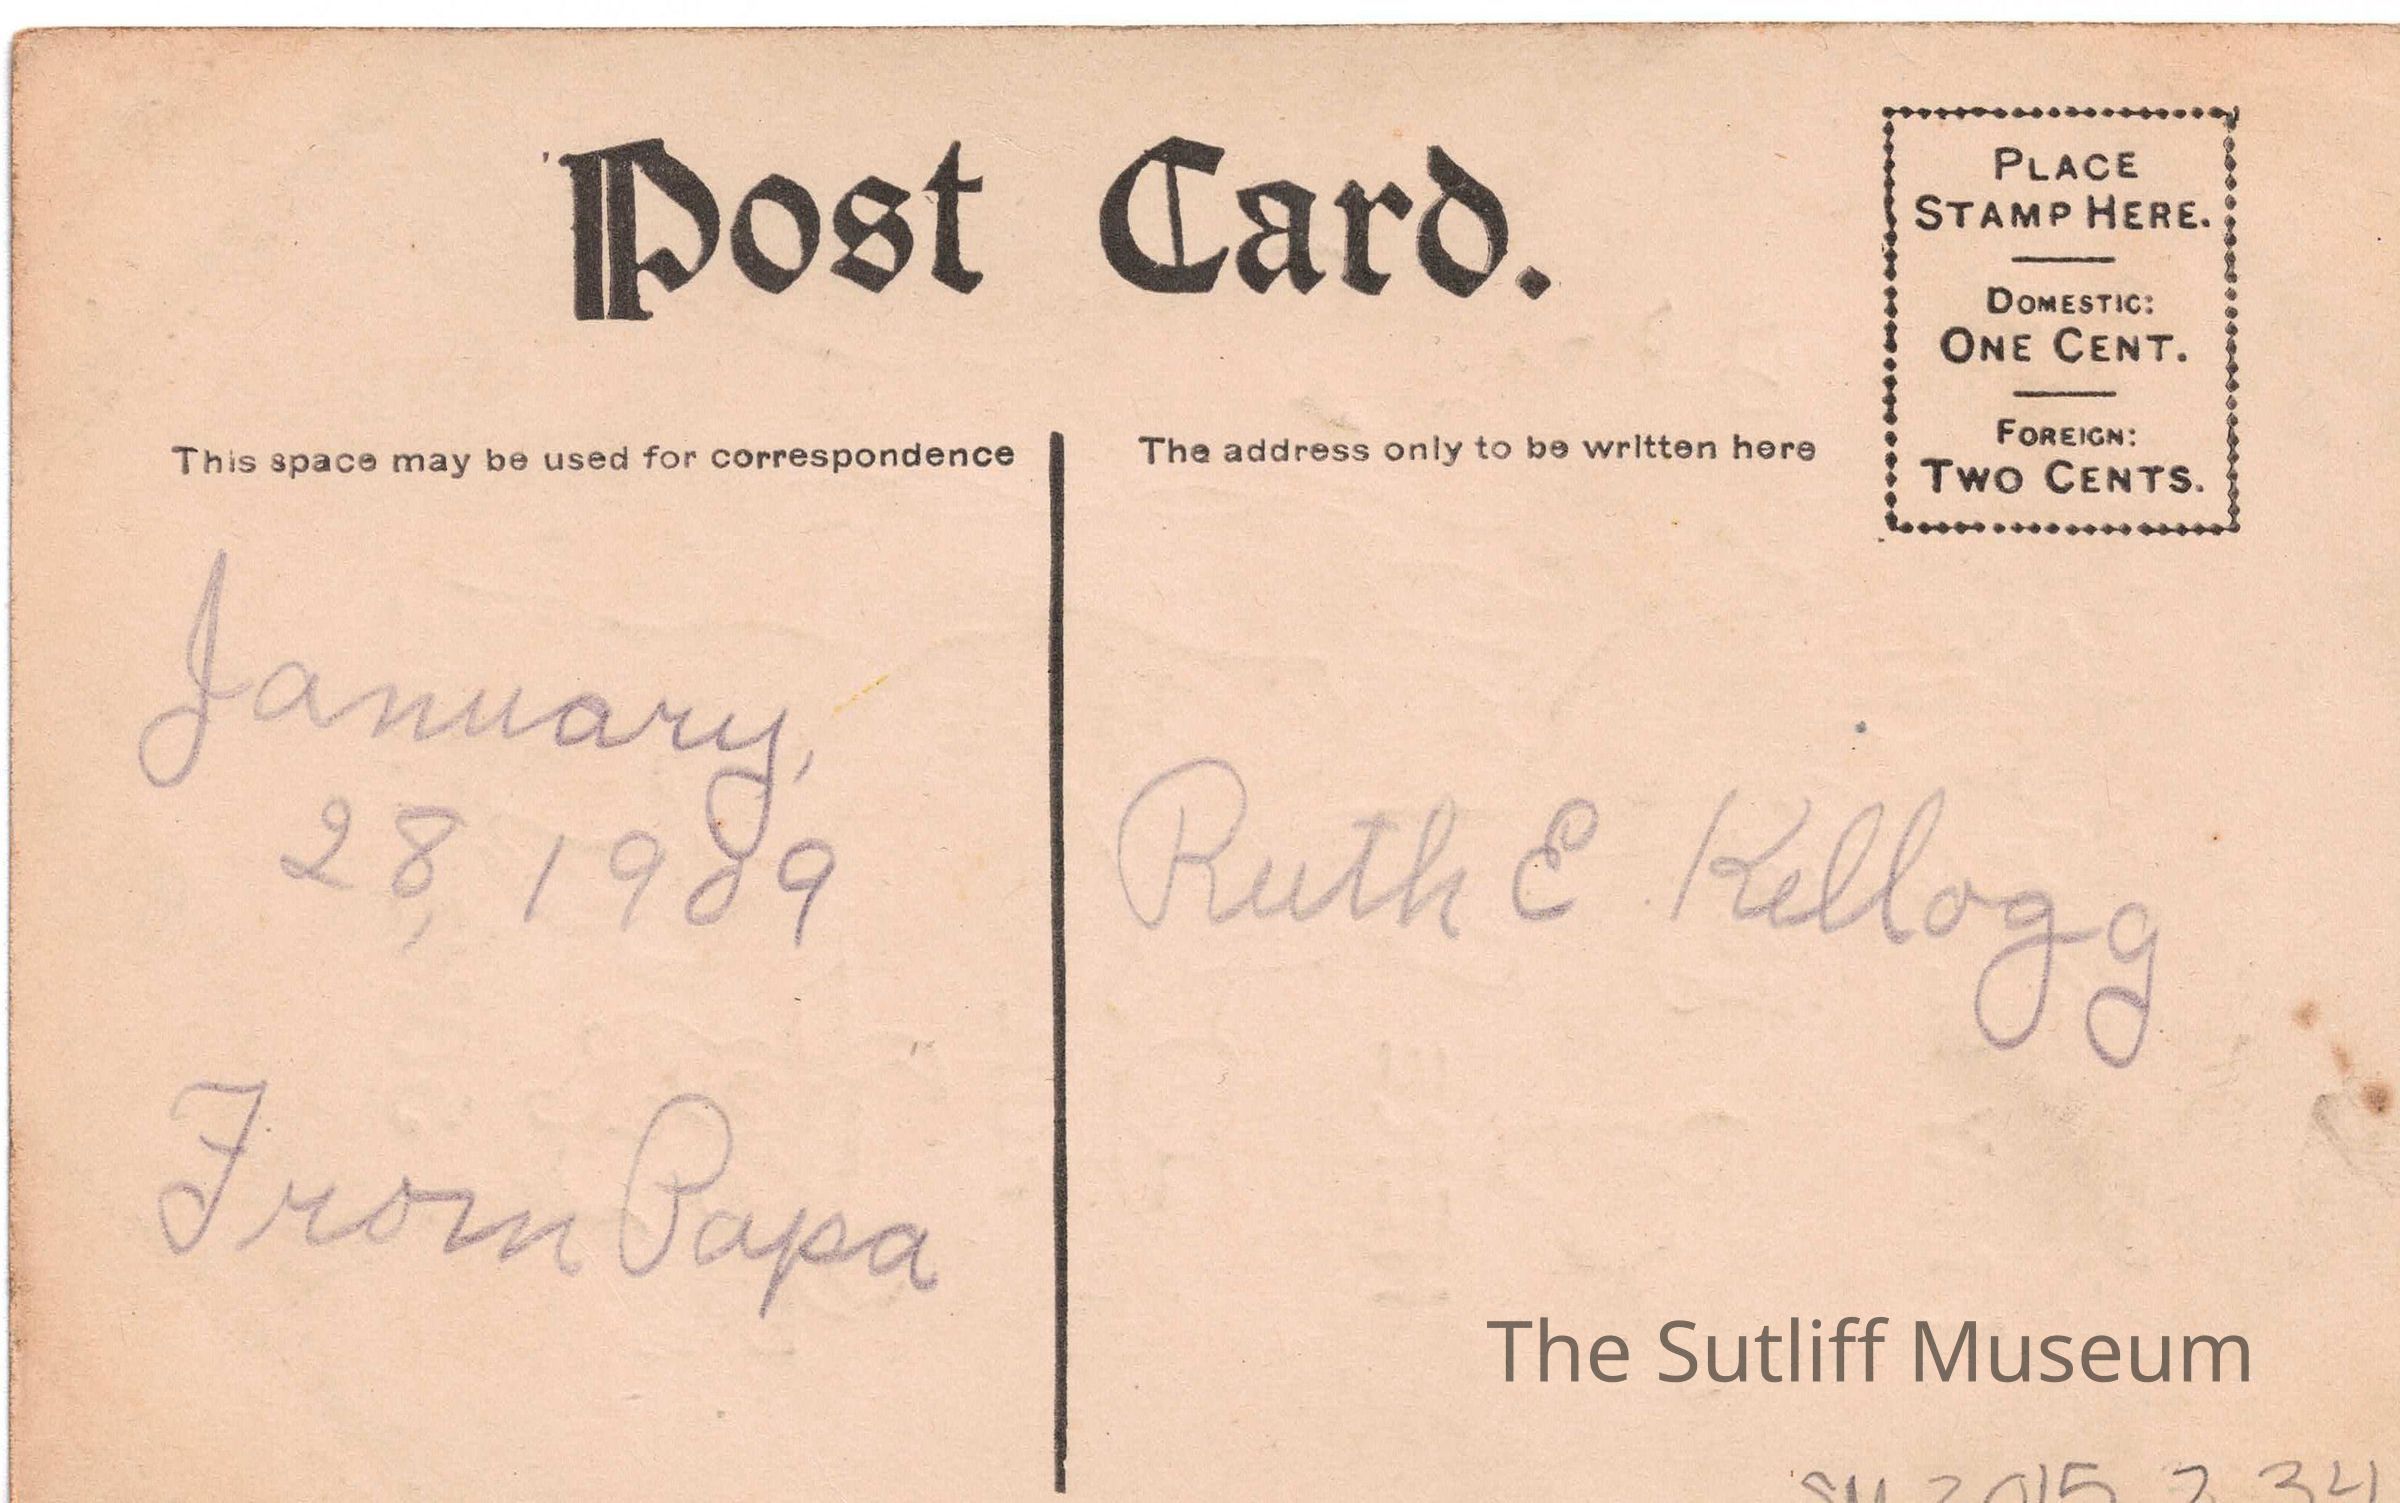 Post Card.
PLACE
STAMP HERE.
DOMESTIC:
ONE CENT.
FOREIGN:
TWO CENTS.
This space may be used for correspondence
The address only to be written here
January,
28, 1909
From Papa
Ruth E. Kellogg
The Sutliff Museum